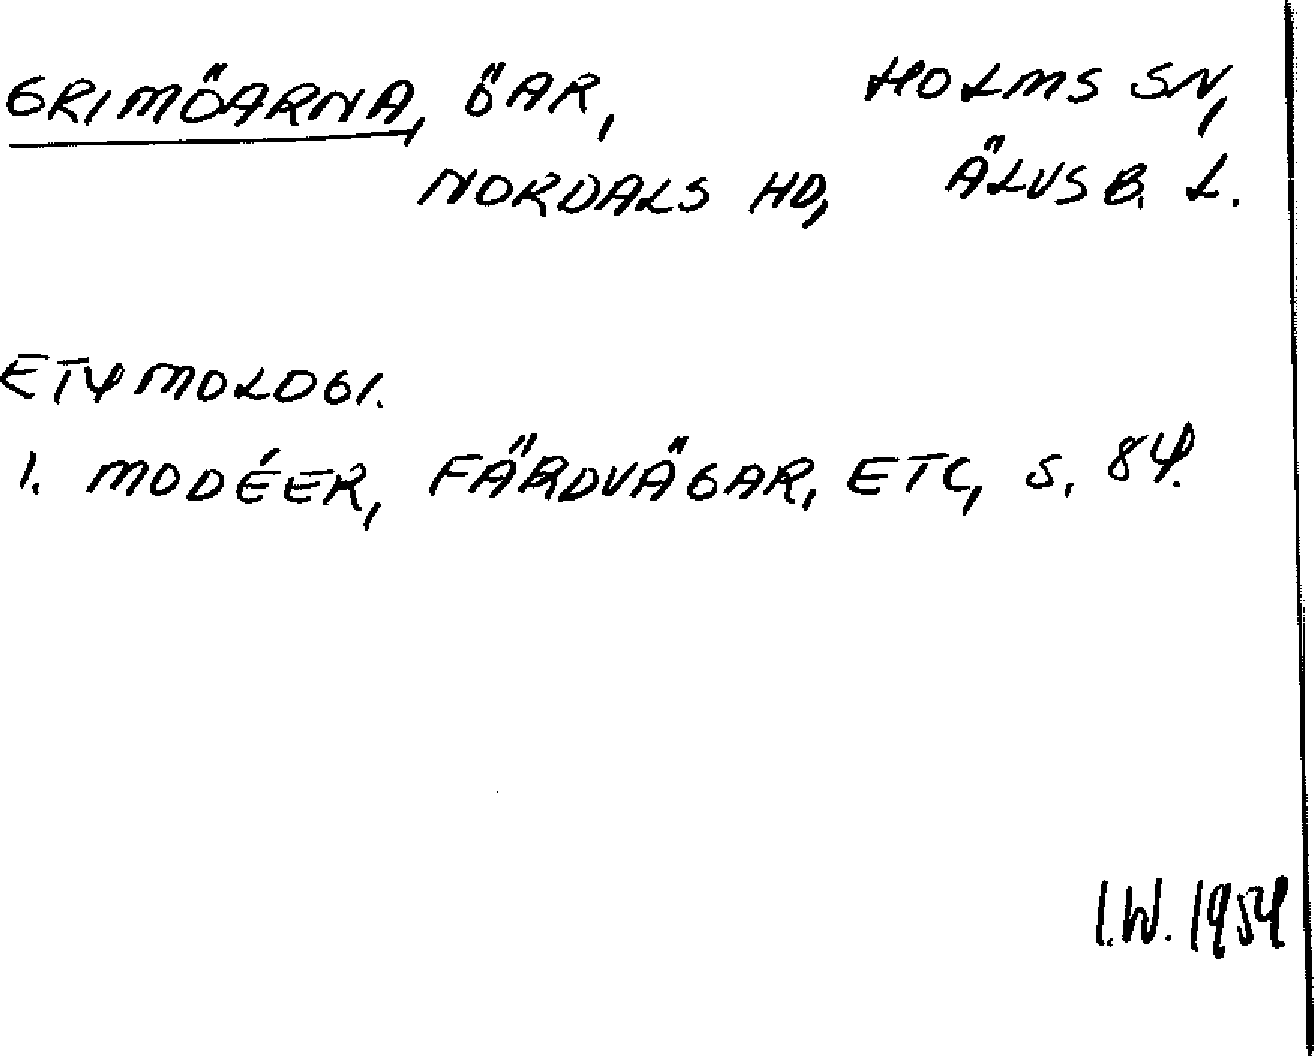 GRIMÖARNA, ÖAR, HOLMS SN,
NORDALS HD, ÄLVSB. L.
ETYMOLOGI.
1. MODÉER, FÄRDVÄGAR, ETC, S. 84.
I.W. 1954